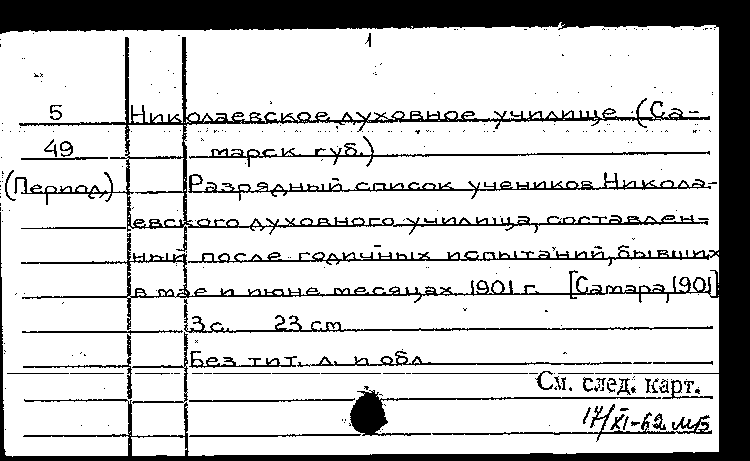 1
5 Николаевское духовное училище (Са-
49 марск. губ.)
(Период.) Разрядный список учеников Никола-
евского духовного училища, составлен-
ный после годичных испытаний, бывших
в мае и июне месяцах 1901 г. [Самара, 1901]
3 с. 23 cm
Без тит. л. и обл.
См. след. карт.
17/XI-62 МБ